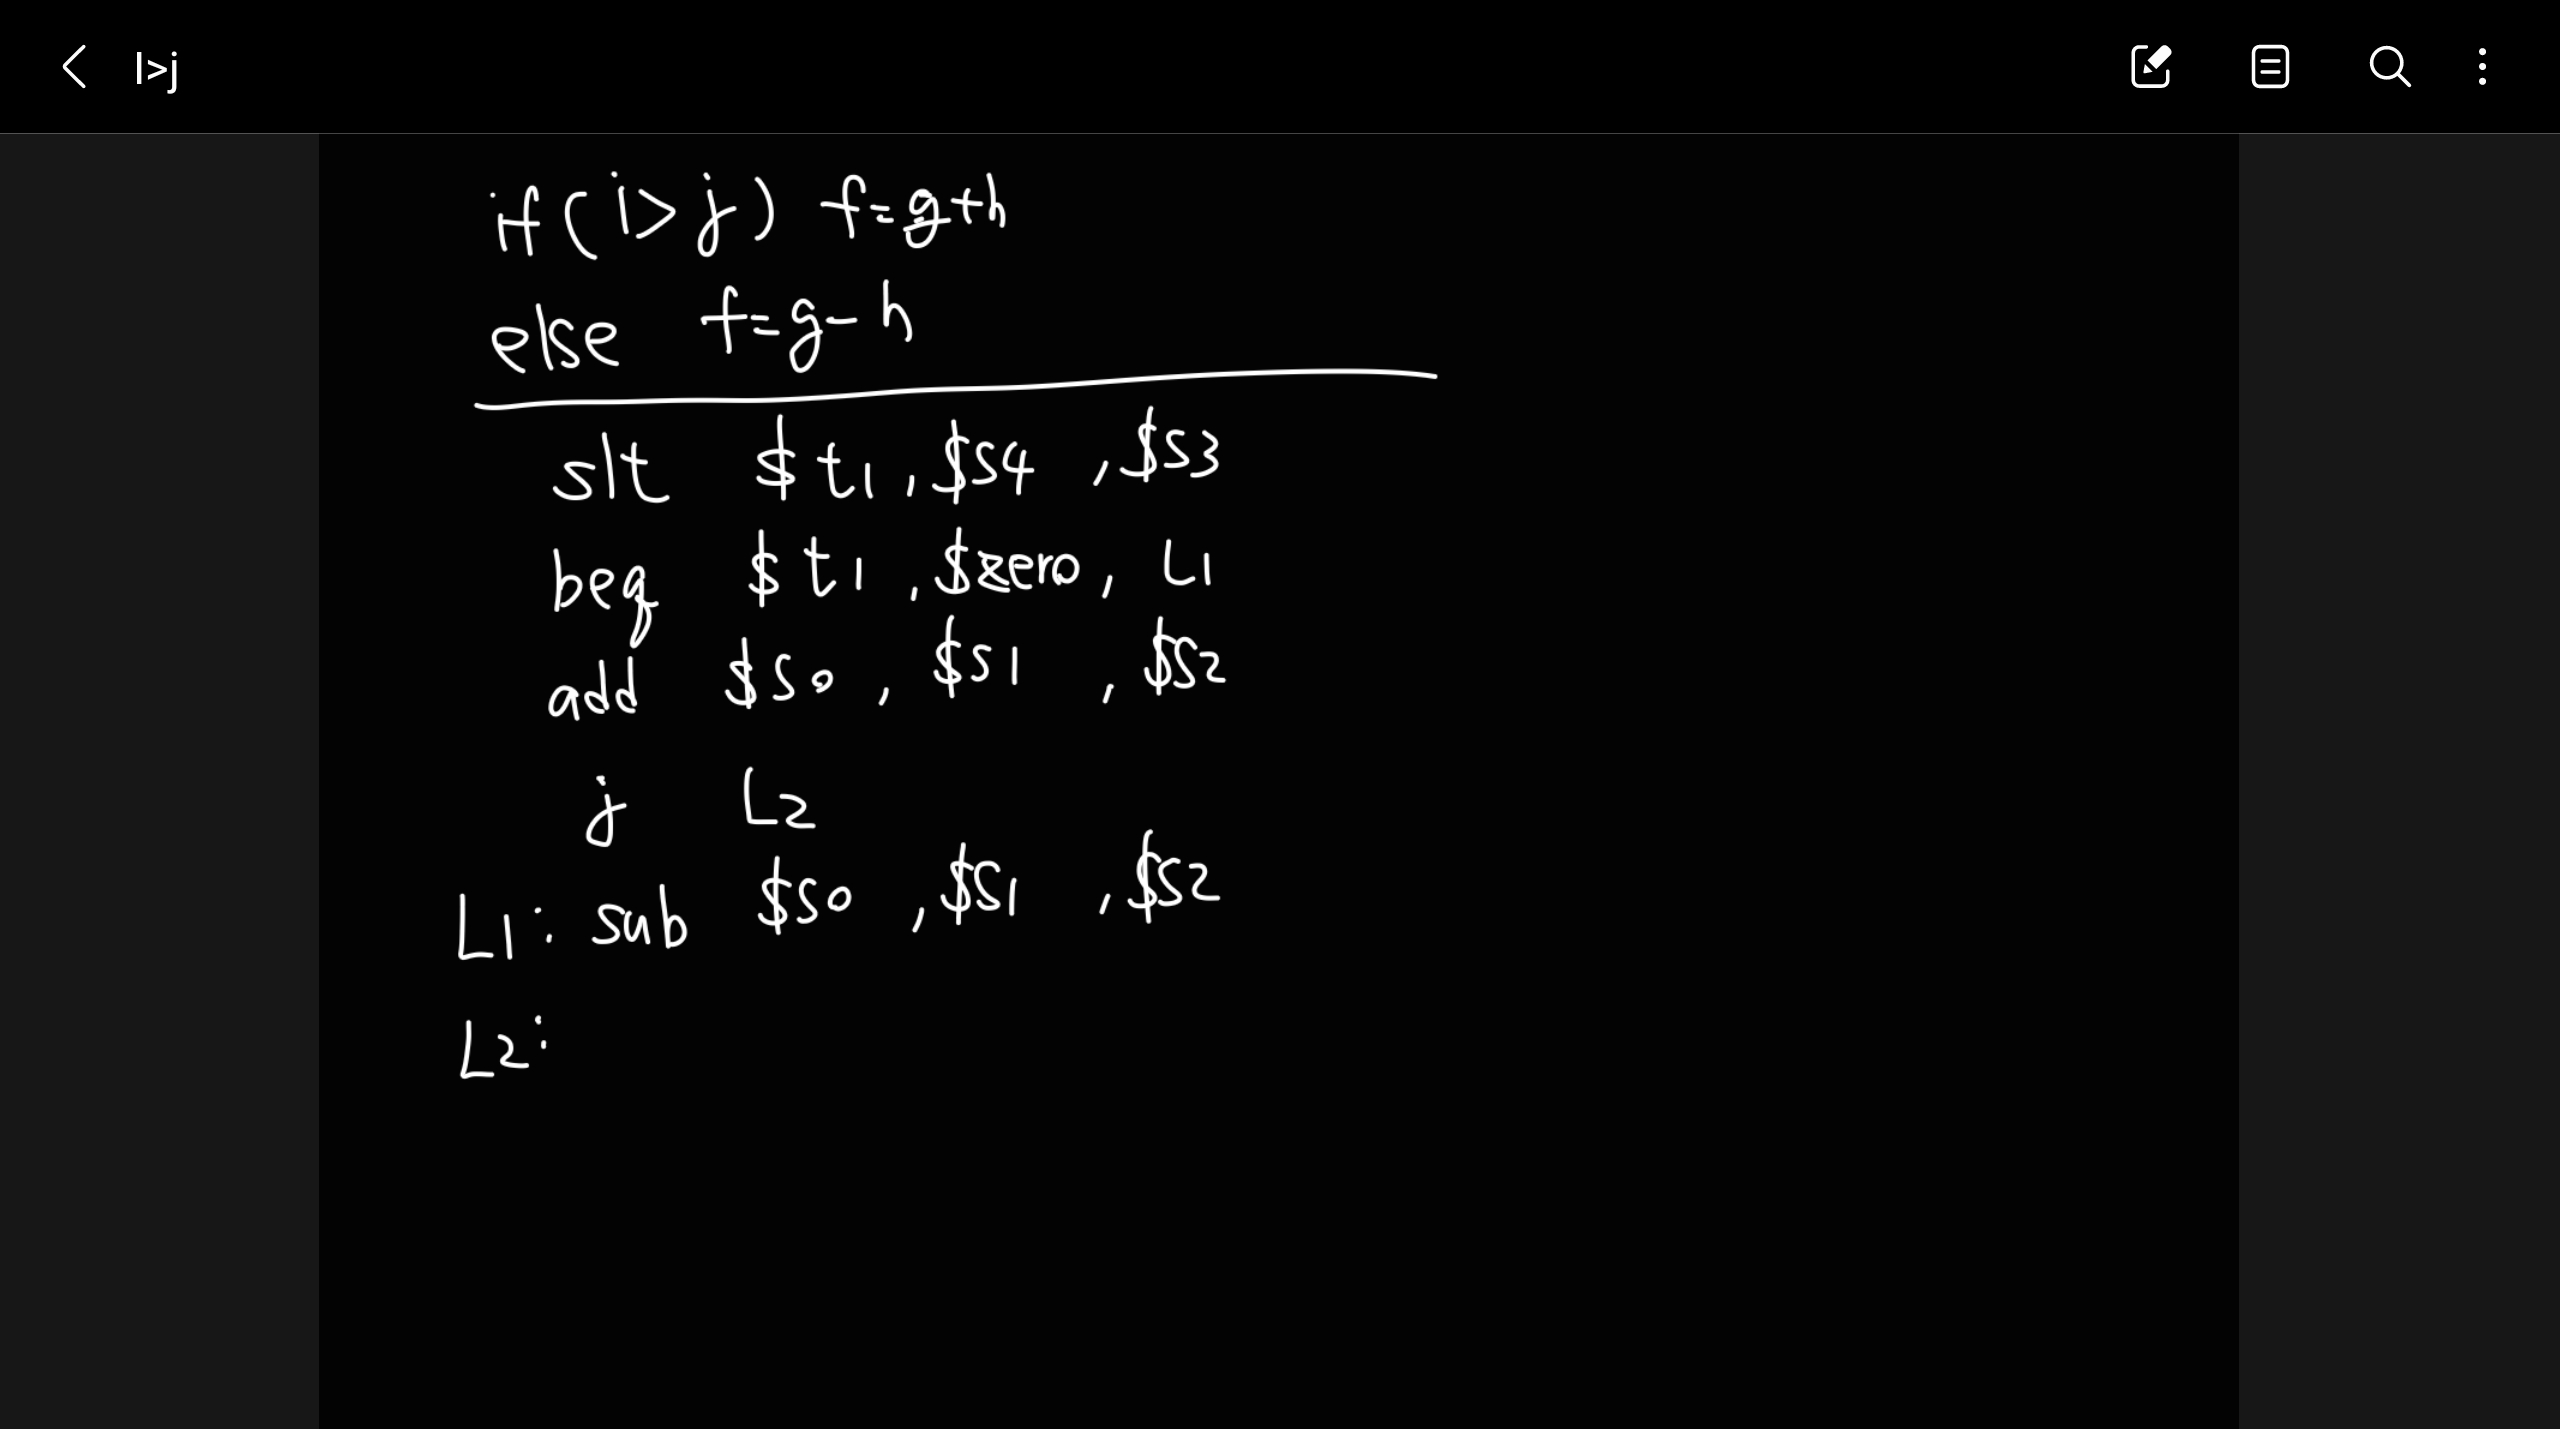 I>j
if(i>j) f=g+h
else f=g-h
slt $t1,$s4,$s3
beq $t1,$zero, L1
add $s0, $s1, $s2
j L2
L1: sub $s0,$s1,$s2
L2: